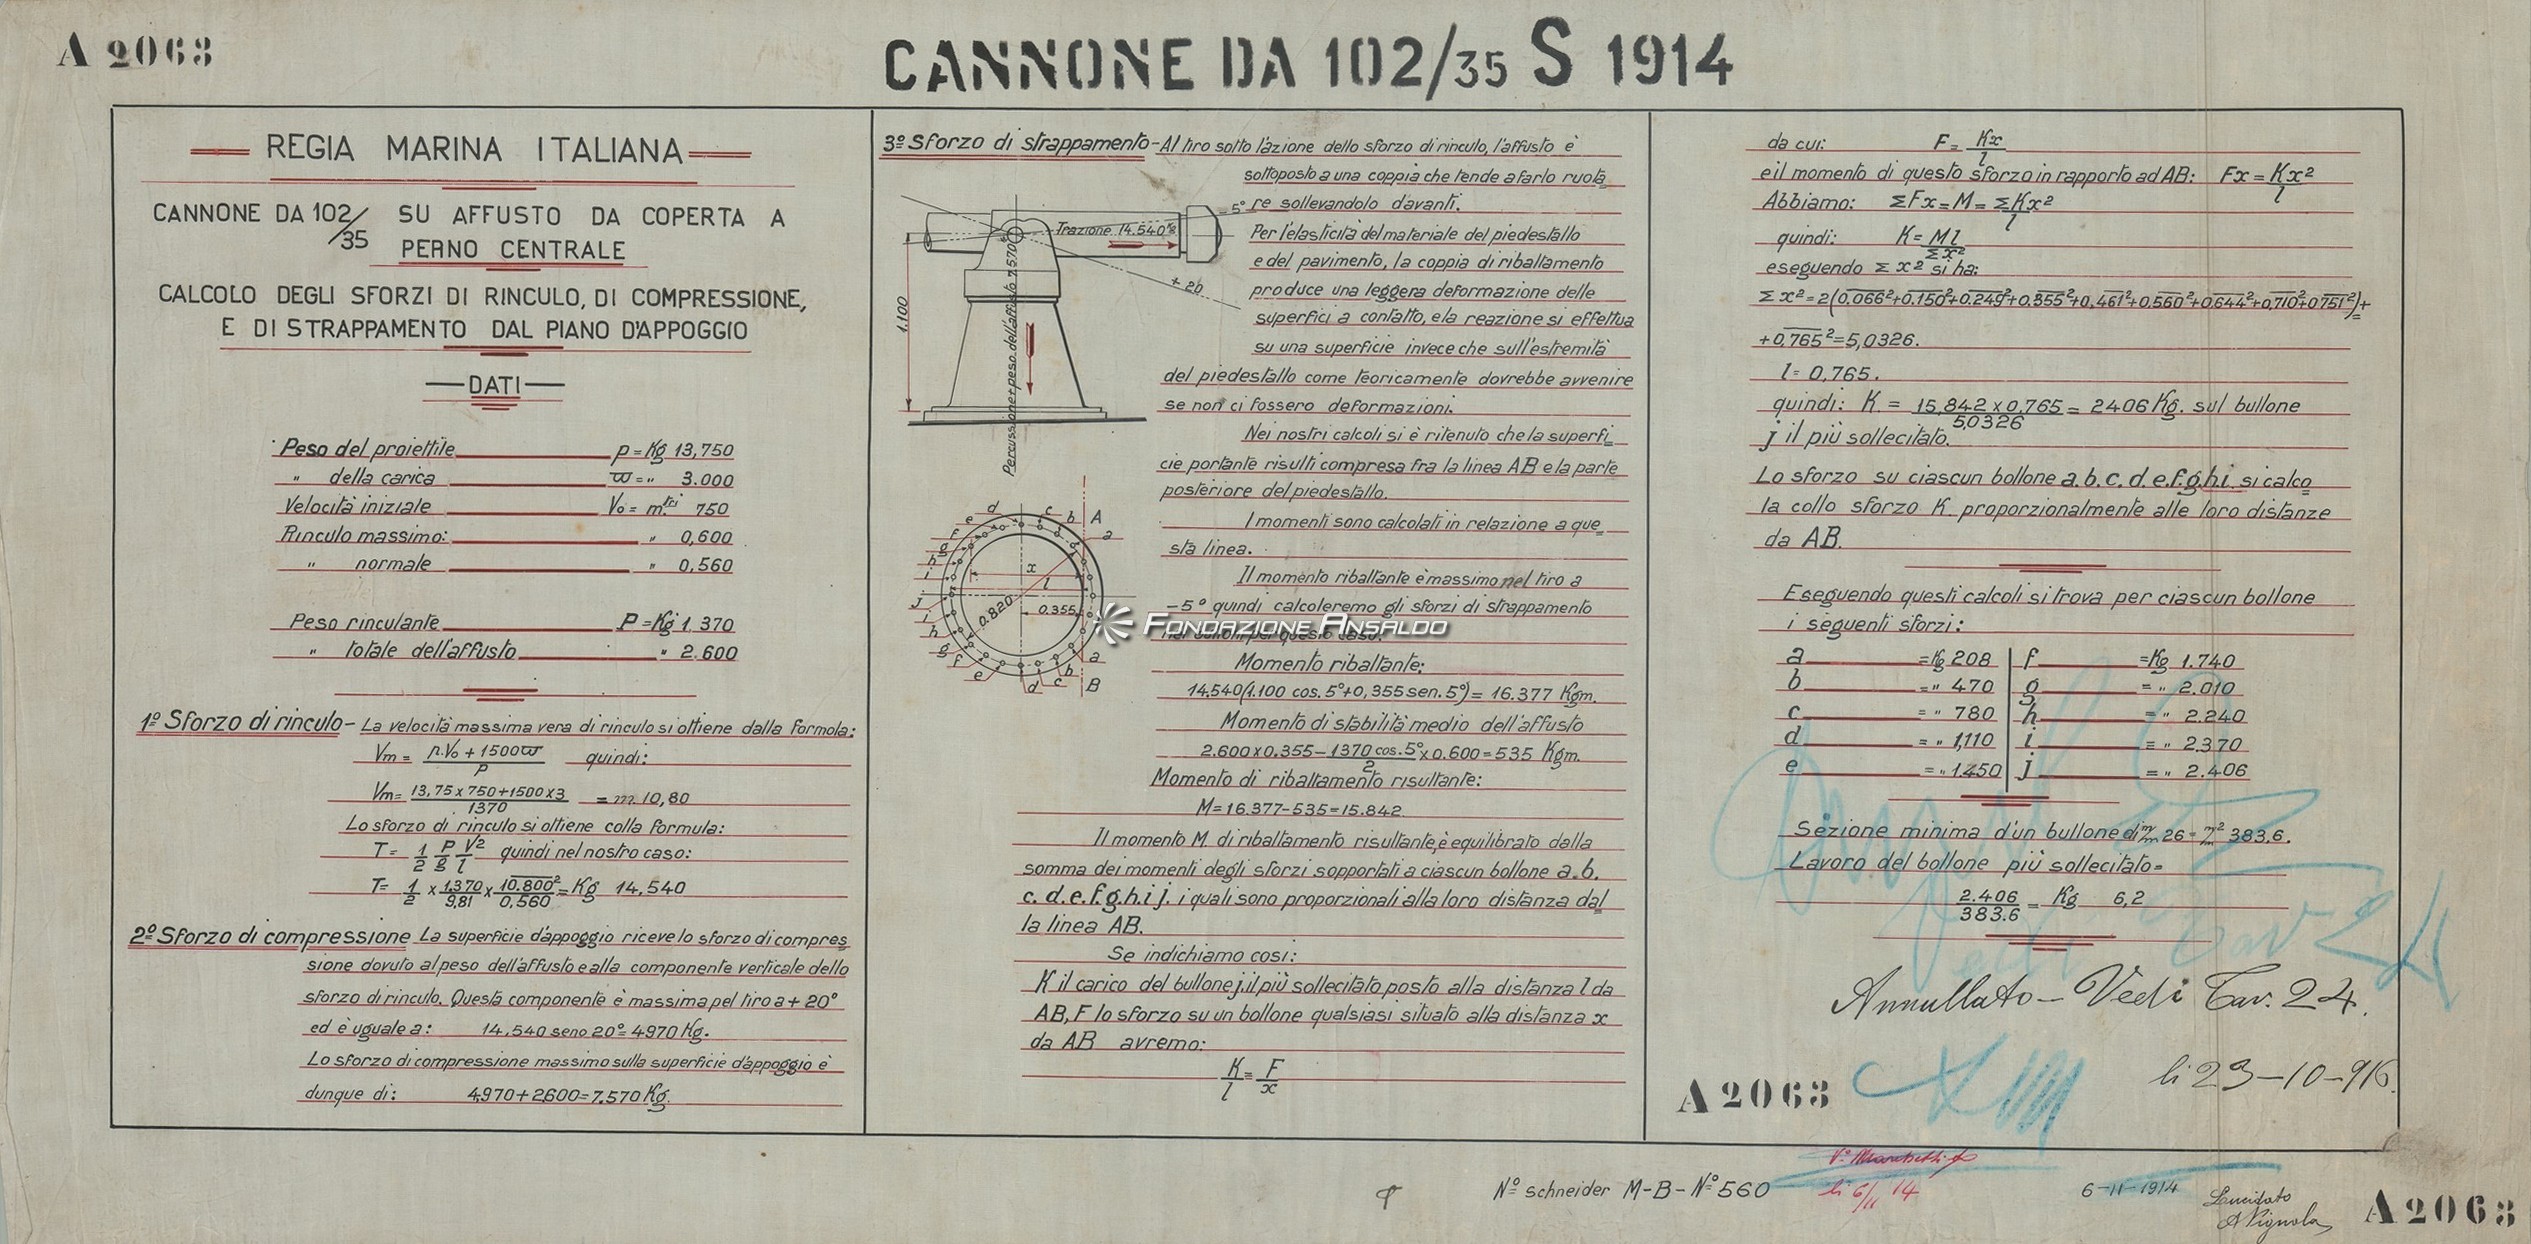 A 2063
CANNONE DA 102/35 S 1914
REGIA MARINA ITALIANA
CANNONE DA 102/35 SU AFFUSTO DA COPERTA A
PERNO CENTRALE
CALCOLO DEGLI SFORZI DI RINCULO, DI COMPRESSIONE,
E DI STRAPPAMENTO DAL PIANO D'APPOGGIO
DATI
Peso del proiettile p = Kg 13,750
" della carica ϖ = " 3.000
Velocità iniziale Vo = mtri 750
Rinculo massimo: " 0,600
" normale " 0,560
Peso rinculante P = Kg 1.370
" totale dell'affusto " 2.600
1º Sforzo di rinculo - La velocità massima vera di rinculo si ottiene dalla formola:
Vm = p.Vo + 1500ϖ / P quindi:
Vm = 13,75 x 750 + 1500 x 3 / 1370 = m. 10,80
Lo sforzo di rinculo si ottiene colla formula:
T = 1/2 P/g V²/l quindi nel nostro caso:
T = 1/2 x 1,370/9,81 x 10.800²/0,560 = Kg 14,540
2º Sforzo di compressione La superficie d'appoggio riceve lo sforzo di compres=
sione dovuto al peso dell'affusto e alla componente verticale dello
sforzo di rinculo. Questa componente è massima pel tiro a + 20°
ed è uguale a: 14,540 seno 20° = 4970 Kg.
Lo sforzo di compressione massimo sulla superficie d'appoggio è
dunque di: 4,970 + 2,600 = 7.570 Kg.
3º Sforzo di strappamento - Al tiro sotto l'azione dello sforzo di rinculo, l'affusto è
sottoposto a una coppia che tende a farlo ruota=
re sollevandolo davanti.
Per l'elasticità del materiale del piedestallo
e del pavimento, la coppia di ribaltamento
produce una leggera deformazione delle
superfici a contatto, e la reazione si effettua
su una superficie invece che sull'estremità
del piedestallo come teoricamente dovrebbe avvenire
se non ci fossero deformazioni.
Nei nostri calcoli si è ritenuto che la superfi=
cie portante risulti compresa fra la linea AB e la parte
posteriore del piedestallo.
I momenti sono calcolati in relazione a que=
sta linea.
Il momento ribaltante è massimo nel tiro a
- 5° quindi calcoleremo gli sforzi di strappamento
per questo caso:
Momento ribaltante:
14.540 (1.100 cos. 5° + 0,355 sen. 5°) = 16.377 Kgm.
Momento di stabilità medio dell'affusto
2.600 x 0.355 - 1370 cos. 5°/2 x 0.600 = 535 Kgm.
Momento di ribaltamento risultante:
M = 16.377 - 535 = 15.842
Il momento M. di ribaltamento risultante, è equilibrato dalla
somma dei momenti degli sforzi sopportati a ciascun bollone a. b.
c. d. e. f. g. h. i j. i quali sono proporzionali alla loro distanza dal=
la linea AB.
Se indichiamo così:
K il carico del bullone j, il più sollecitato posto alla distanza l da
AB, F lo sforzo su un bollone qualsiasi situato alla distanza x
da AB avremo:
K/l = F/x
- 5°
Trazione 14.540 Kg
+ 20
1.100
Percussione + peso dell'affusto 7.570 Kg
d c b A a
e f g h i j
x l
0.820 0.355
i h g f e d c b a B
Fondazione Ansaldo
da cui: F = Kx/l
e il momento di questo sforzo in rapporto ad AB: Fx = Kx²/l
Abbiamo: ΣFx = M = ΣKx²/l
quindi: K = Ml/Σx²
eseguendo Σx² si ha:
Σx² = 2(0,066² + 0.150² + 0.249² + 0.355² + 0,461² + 0.560² + 0.644² + 0,710² + 0751²) +
+ 0,765² = 5,0326.
l = 0,765.
quindi: K = 15,842 x 0,765 / 5,0326 = 2406 Kg. sul bullone
j il più sollecitato.
Lo sforzo su ciascun bollone a. b. c. d. e. f. g. h. i. si calco=
la collo sforzo K. proporzionalmente alle loro distanze
da AB.
Eseguendo questi calcoli si trova per ciascun bollone
i seguenti sforzi:
a = Kg 208 f = Kg 1.740
b = " 470 g = " 2.010
c = " 780 h = " 2.240
d = " 1,110 i = " 2.370
e = " 1.450 j = " 2.406
Sezione minima d'un bullone di m/m 26 = m/m² 383,6.
Lavoro del bollone più sollecitato =
2.406/383.6 = Kg 6,2
Annullato - Vedi Tav. 24.
li 23-10-916
A 2063
Nº schneider M-B-Nº 560
li 6/11 14
6-11-1914
Lucidato
A Vignola
A 2063